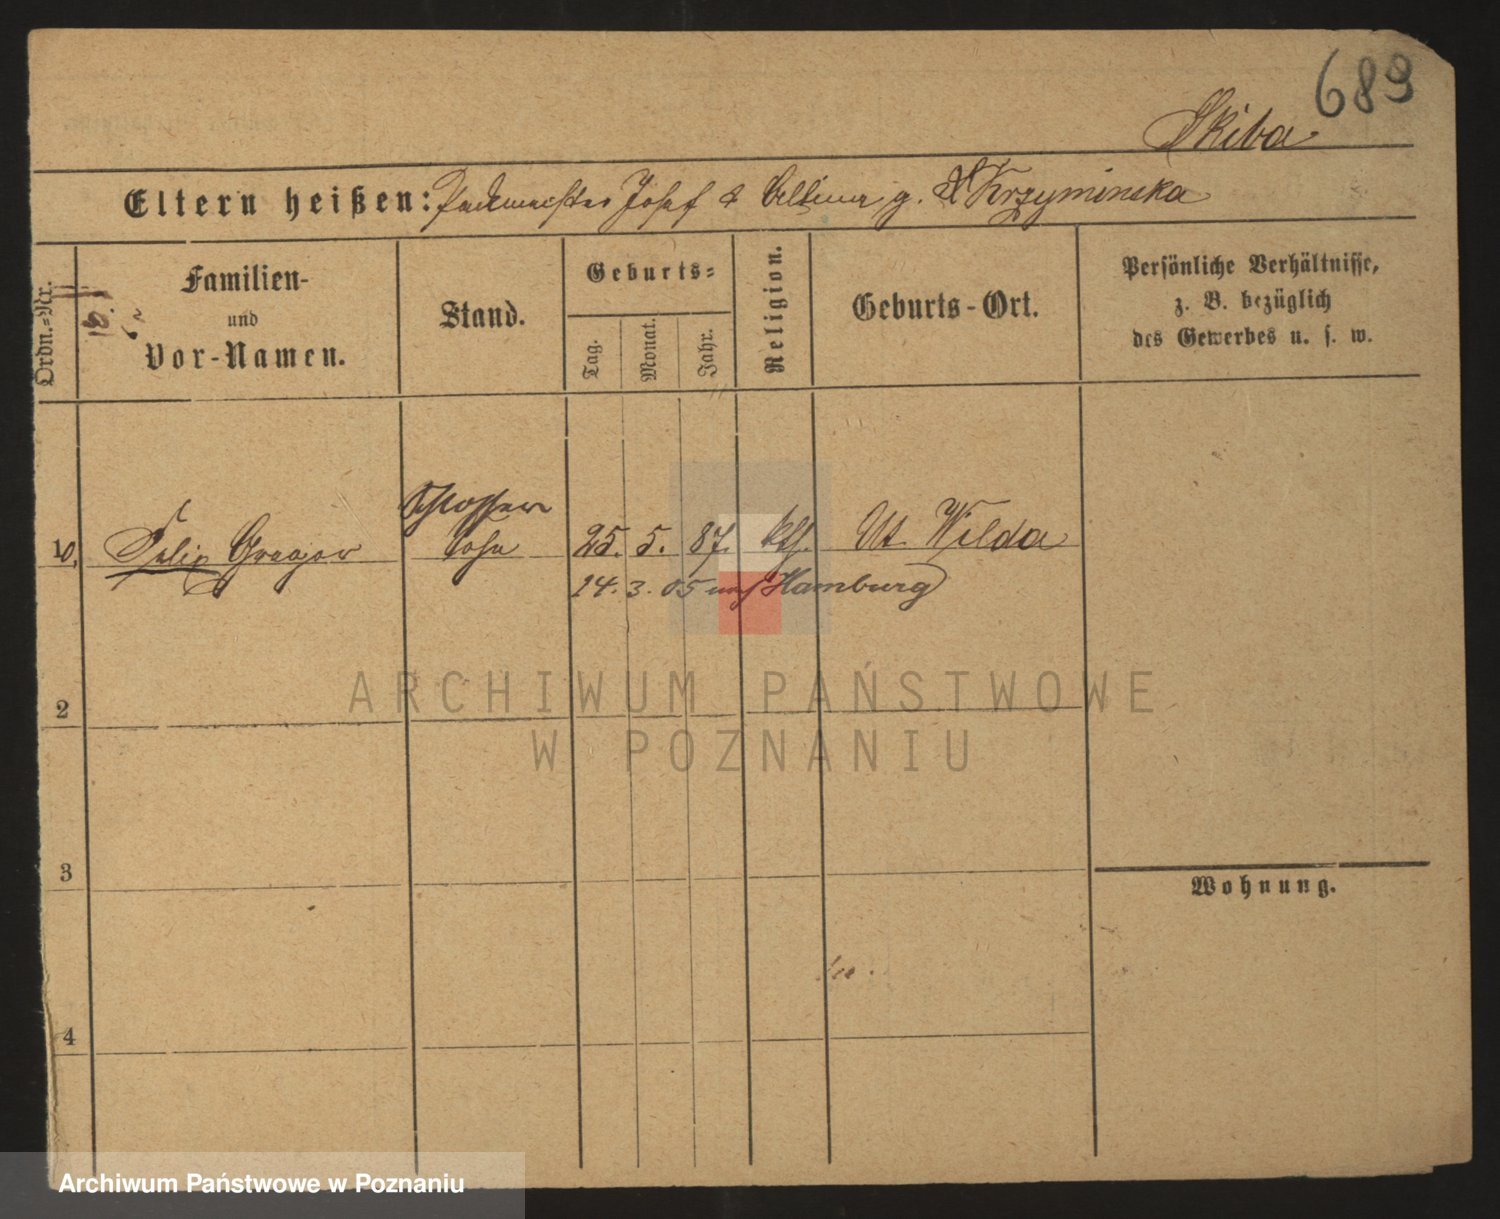 689
Skiba
Eltern heißen: Packmeister Josef & g. Krzyminska
Ordn.=Nr.
Familien-
und
Vor-Namen.
Stand.
Geburts=
Tag.
Monat.
Jahr.
Religion.
Geburts-Ort.
Persönliche Verhältnisse,
z. B. bezüglich
des Gewerbes u. s. w.
Schlosser
10, Felix Gregor Sohn 25. 5. 87. kth. Ut. Wilda
14. 3. 05 nach Hamburg
2
3
4
Wohnung.
ARCHIWUM PAŃSTWOWE
W POZNANIU
Archiwum Państwowe w Poznaniu